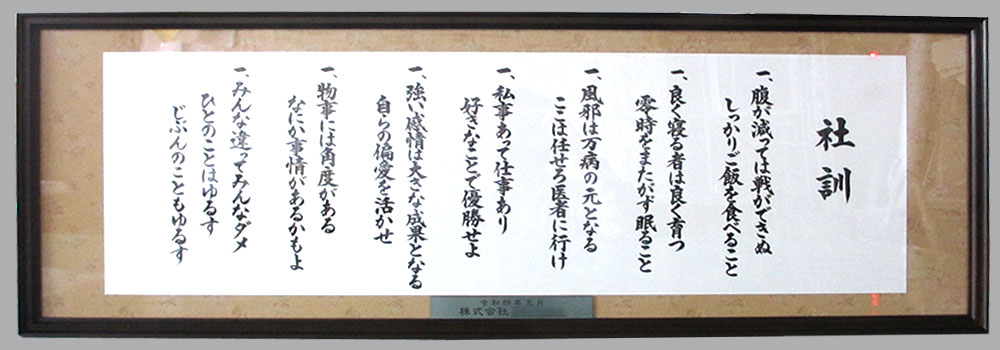 社訓
一、腹が減っては戦ができぬ
しっかりご飯を食べること
一、良く寝る者は良く育つ
零時をまたがず眠ること
一、風邪は万病の元となる
ここは任せろ医者に行け
一、私事あって仕事あり
好きなことで優勝せよ
一、強い感情は大きな成果となる
自らの偏愛を活かせ
一、物事には角度がある
なにか事情があるかもよ
一、みんな違ってみんなダメ
ひとのことはゆるす
じぶんのこともゆるす
令和四年五月
株式会社